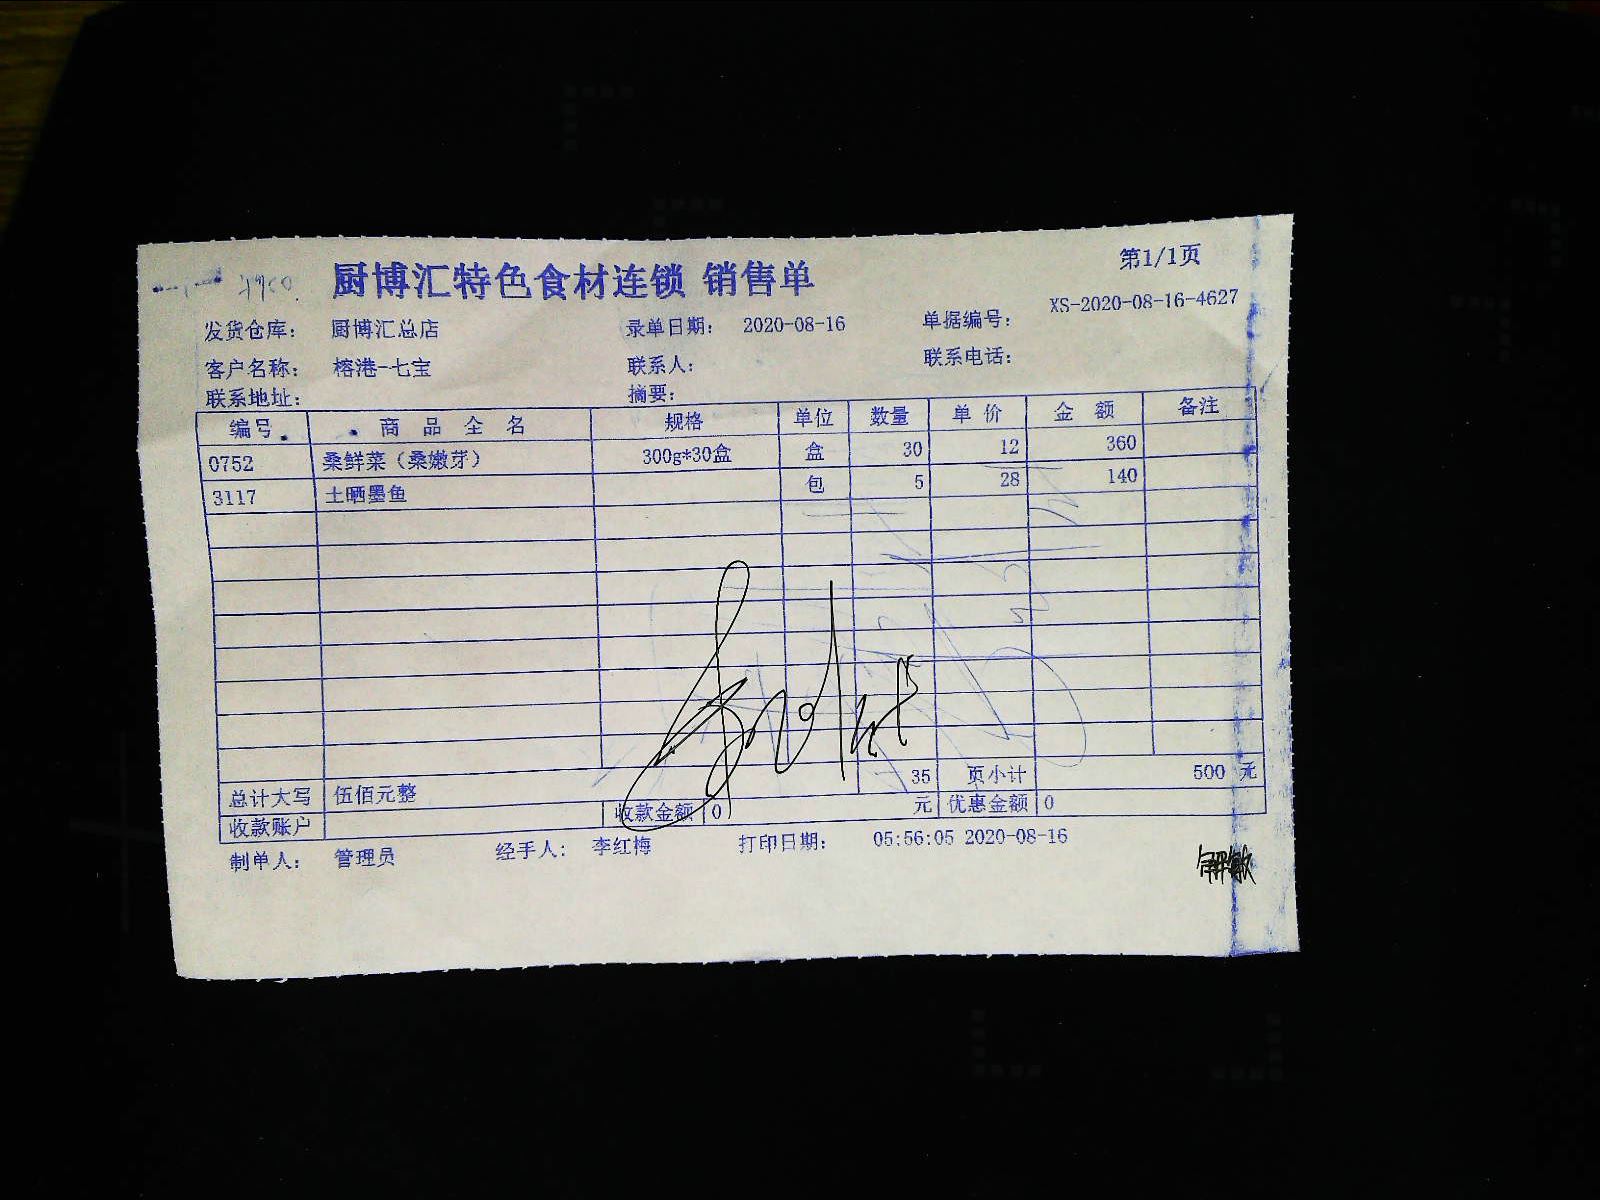 第1/1页
厨博汇特色食材连锁 销售单
发货仓库： 厨博汇总店 录单日期： 2020-08-16 单据编号： XS-2020-08-16-4627
客户名称： 榕港-七宝 联系人： 联系电话：
联系地址： 摘要：
编号 商品全名 规格 单位 数量 单价 金额 备注
0752 桑鲜菜（桑嫩芽） 300g*30盒 盒 30 12 360
3117 土晒墨鱼 包 5 28 140
总计大写 伍佰元整 35 页小计 500 元
收款账户 收款金额 0 元 优惠金额 0
制单人： 管理员 经手人： 李红梅 打印日期： 05:56:05 2020-08-16